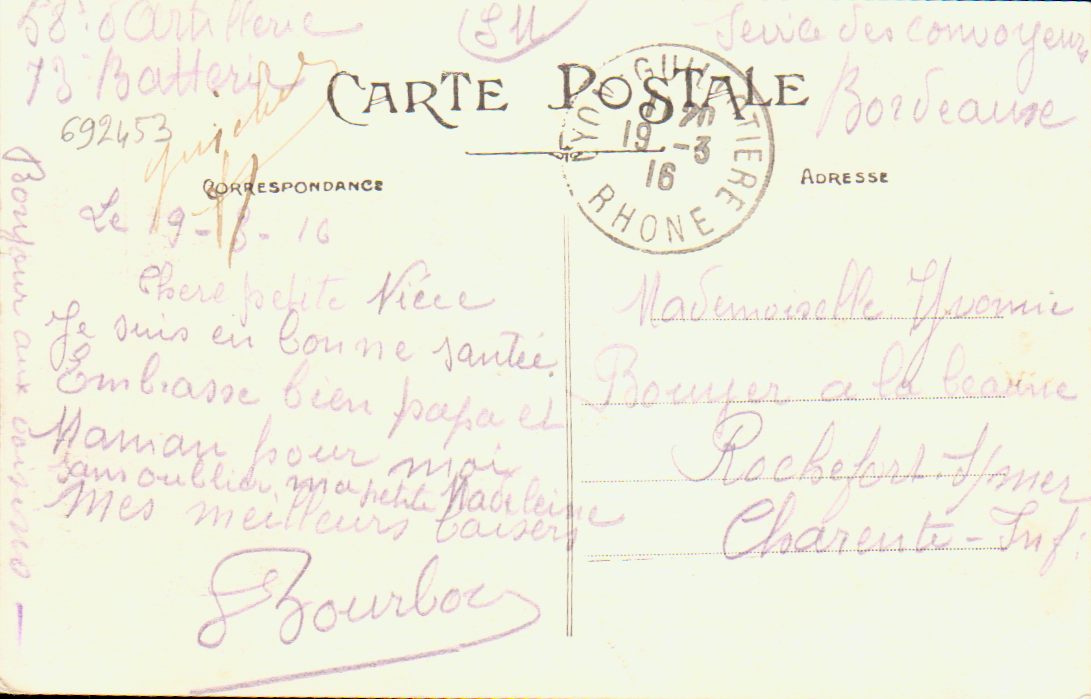 58e d'Artillerie
73e Batterie
(SM)
Service des convoyeurs
Bordeaux
692453
CARTE POSTALE
LYON GUILLOTIERE
19 -3
16
RHONE
CORRESPONDANCE
ADRESSE
Le 19-3-16
Chere petite Niéce
Je suis en bonne santée.
Embrasse bien papa et
Maman pour moi
sans oublier ma petite Madeleine
Mes meilleurs baisers
Bonjour aux voisins
Mademoiselle Yvonne
Bouyer a la beaune
Rochefort s/ mer
Charente-Inf: